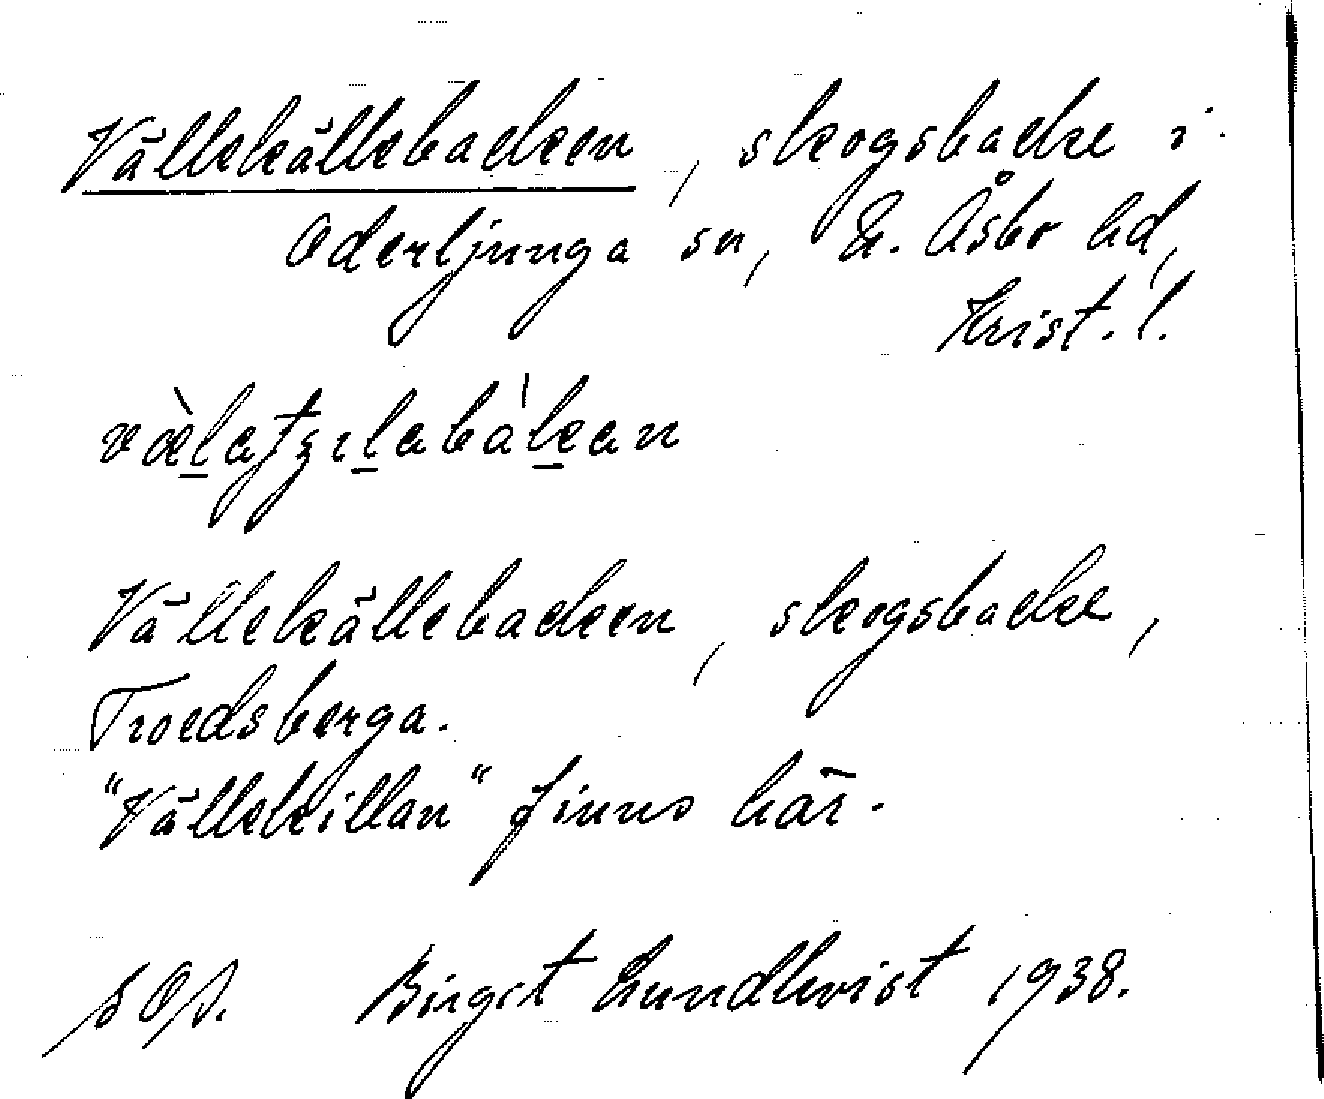 Vällekällebacken, skogsbacke i
Oderljunga sn, N. Åsbo hd,
Krist. l.
Vällekällebacken, skogsbacke,
Troedsberga.
"Vällekillan" finns här.
Birgit Lundkvist 1938.